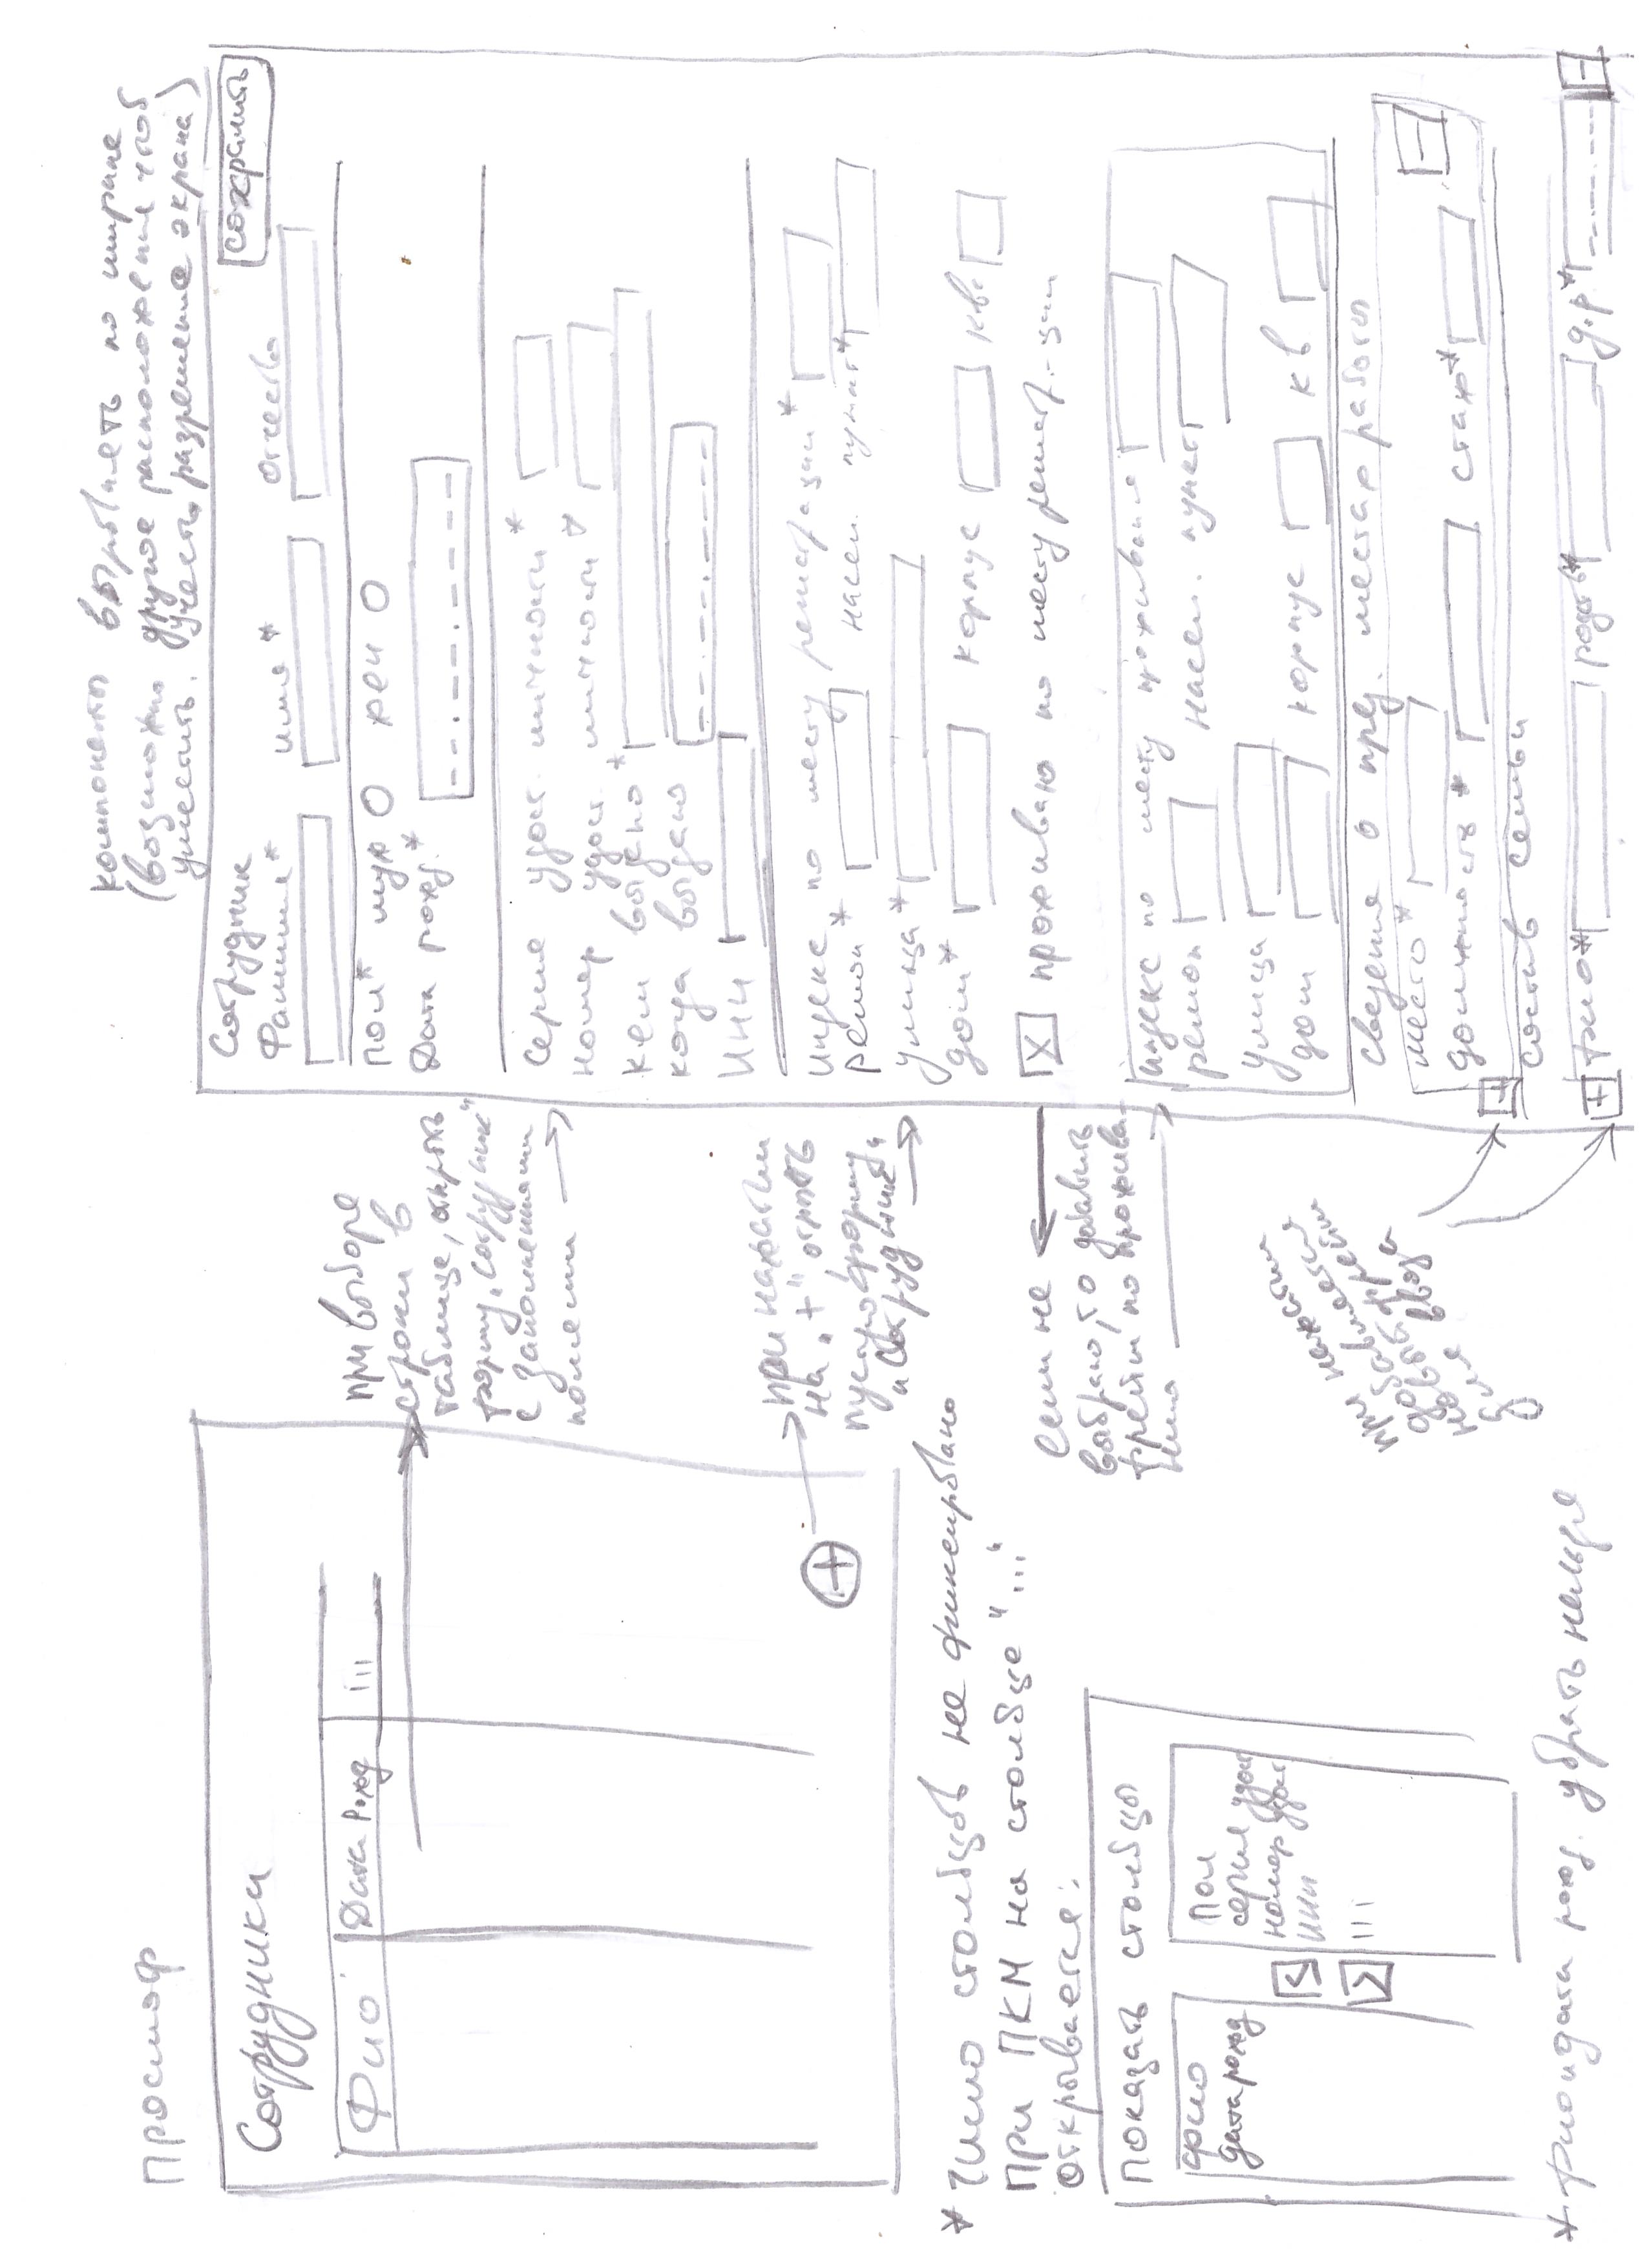 Просмотр
Сотрудники
Фио
Дата Рожд
...
при выборе
строки в
таблице, открыть
форму „Сотрудник"
с заполненными
полями
при нажатии
на „+", открыть
пустую форму
„Сотрудник"
* Число столбцов не фиксировано
При ПКМ на столбце "..."
открывается:
Показать столбцы
фио
дата рожд
<
>
Пол
серия удост
номер удост
ИНН
...
* фио и дата рожд. убрать нельзя
компоненты выровнять по ширине
(возможно другое расположение чтоб
уместить. Учесть разрешение экрана)
Сотрудник
сохранить
Фамилия* имя* отчество
пол* муж жен
Дата рожд.* __.__.____
Серия удост. личности*
номер удост. личности*
кем выдано*
когда выдано __.__.____
ИНН
индекс по месту регистрации*
регион* насел. пункт*
улица*
дом* корпус кв
X проживаю по месту регистр.-ции
если не
выбрано, то добавить
фрейм по прожива-
нию
индекс по месту проживания
регион насел. пункт
улица
дом корпус кв
Сведения о пред. местах работы
место* -
должность* стаж*
+
состав семьи
+ фио* родств* д.р* __.__.____ -
при нажатии
добавляется
новый фрейм
для ввода